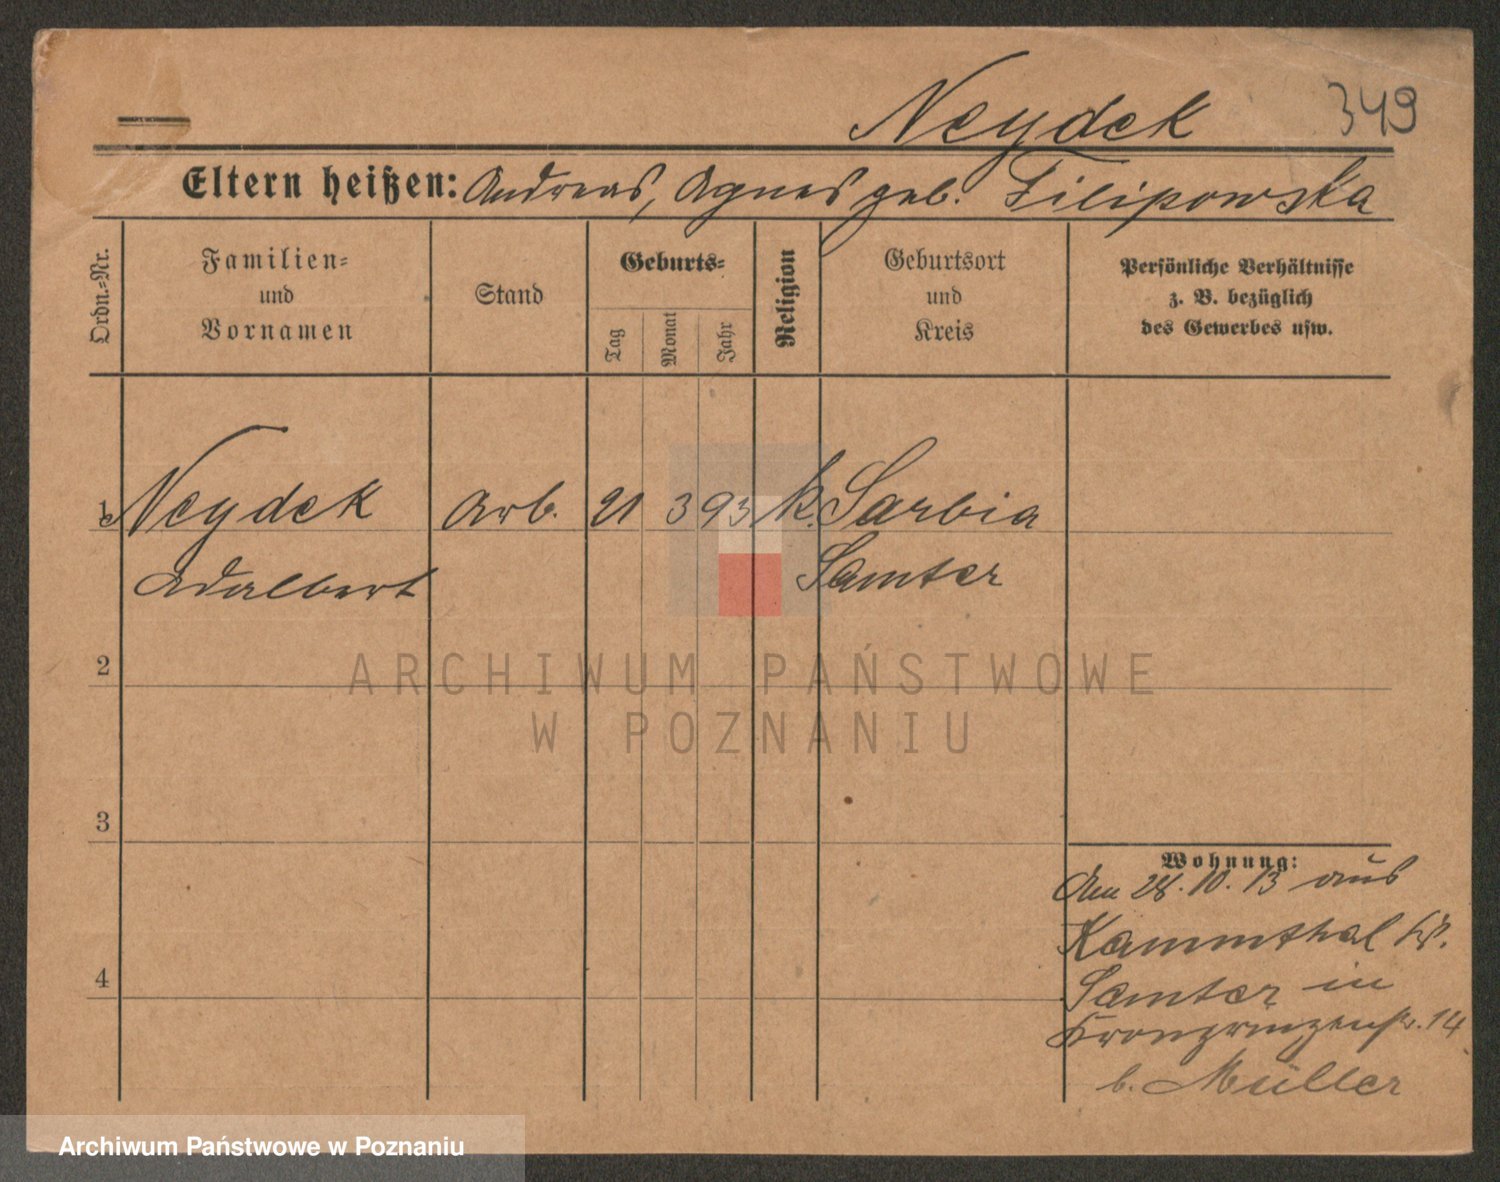 Neydek 349
Eltern heißen: Andreas, Agnes geb. Filipowska
Ordn.=Nr.
Familien=
und
Vornamen
Stand
Geburts=
Tag
Monat
Jahr
Religion
Geburtsort
und
Kreis
Persönliche Verhältnisse
z. B. bezüglich
des Gewerbes usw.
1 Neydek Arb. 21 3 93 k. Sarbia
Adalbert Samter
ARCHIWUM PAŃSTWOWE
W POZNANIU
2
3
4
Wohnung:
Am 28.10.13 aus
Kammthal Kr.
Samter in
Kronprinzenstr. 14
b. Müller
Archiwum Państwowe w Poznaniu